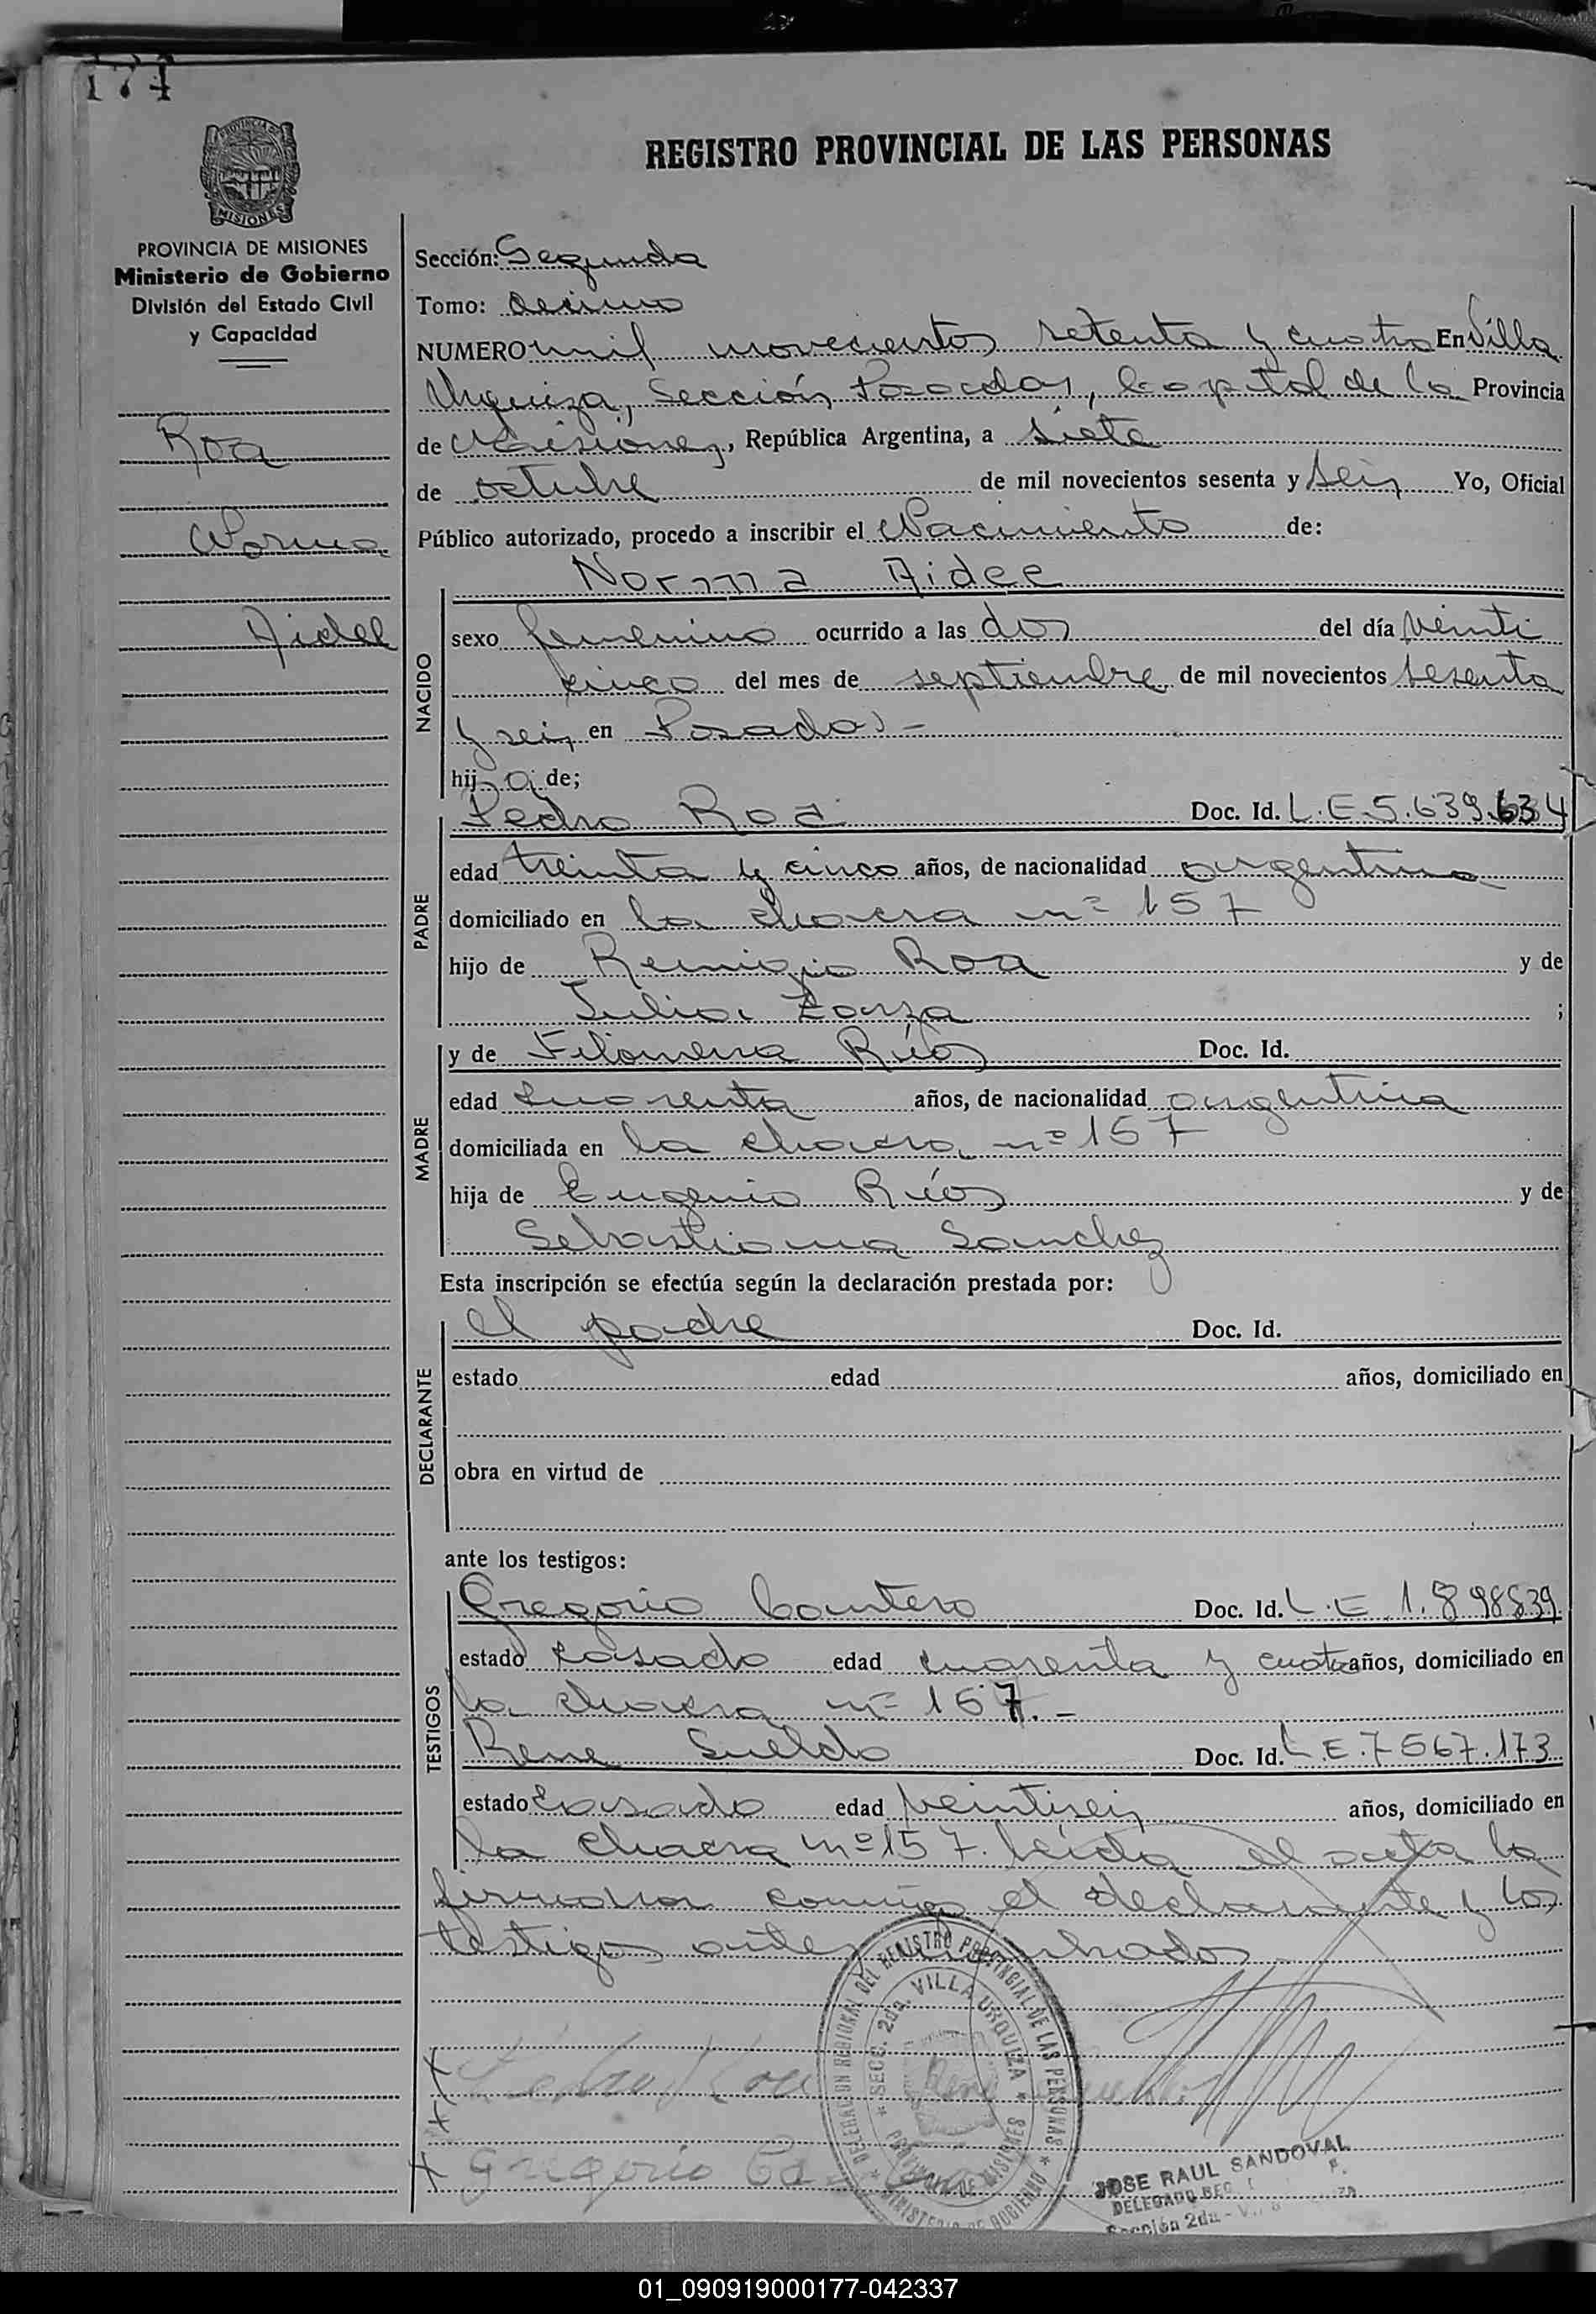 174
PROVINCIA DE
MISIONES
REGISTRO PROVINCIAL DE LAS PERSONAS
PROVINCIA DE MISIONES
Ministerio de Gobierno
División del Estado Civil
y Capacidad
Roa
Norma
Aidee
Sección: Segunda
Tomo: Decimo
NUMERO mil novecientos setenta y cuatro En Villa
Urquiza, Sección Posadas, Capital de la Provincia
de Misiones, República Argentina, a siete
de octubre de mil novecientos sesenta y seis Yo, Oficial
Público autorizado, procedo a inscribir el Nacimiento de:
Norma Aidee
NACIDO
sexo femenino ocurrido a las dos del día veinti
cinco del mes de septiembre de mil novecientos sesenta
y seis en Posadas -
hija de;
PADRE
Pedro Roa Doc. Id. L.E 5.639.634
edad treinta y cinco años, de nacionalidad argentino
domiciliado en la chacra nº 157
hijo de Remigio Roa y de
Julia Zarza ;
MADRE
y de Filomena Ríos Doc. Id.
edad cuarenta años, de nacionalidad argentina
domiciliada en la chacra nº 157
hija de Eugenio Ríos y de
Sebastiana Sanchez
Esta inscripción se efectúa según la declaración prestada por:
DECLARANTE
el padre Doc. Id.
estado edad años, domiciliado en
obra en virtud de
ante los testigos:
TESTIGOS
Gregorio Cantero Doc. Id. L.E 1.898839
estado casado edad cuarenta y cuatro años, domiciliado en
la chacra nº 157. -
Rene Sueldo Doc. Id. L.E.7567.173
estado casado edad veintiseis años, domiciliado en
la chacra nº 157. leída el acta la
firmaron conmigo el declarante y los
testigos antes nombrados
DELEGACION REGIONAL DEL REGISTRO PROVINCIAL DE LAS PERSONAS * MINISTERIO DE GOBIERNO *
* SECC. 2da. VILLA URQUIZA * PROVINCIA DE MISIONES
Pedro Roa Rene Sueldo
Gregorio Cantero
JOSE RAUL SANDOVAL
DELEGADO
Sección 2da -
01_090919000177-042337